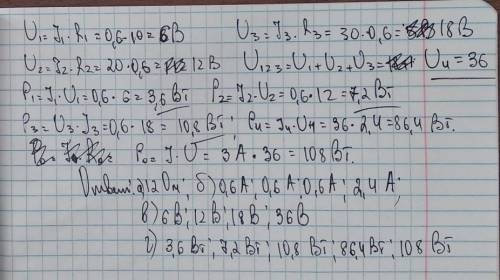 U₁=J₁·R₁=0,6·10=6В U₃=J₃·R₃=30·0,6=18В
U₂=J₂·R₂=20·0,6=12В U₁₂₃=U₁+U₂+U₃= U₄=36
P₁=J₁·U₁=0,6·6=3,6Вт P₂=J₂·U₂=0,6·12=7,2Вт
P₃=U₃·J₃=0,6·18=10,8Вт; P₄=J₄·U₄=36·2,4=86,4Вт.
P₀=J·U=3А·36=108Вт.
Ответ: а)12Ом; б)0,6А; 0,6А; 0,6А; 2,4А;
в)6В; 12В; 18В; 36В
г)3,6Вт; 7,2Вт; 10,8Вт; 86,4Вт; 108Вт